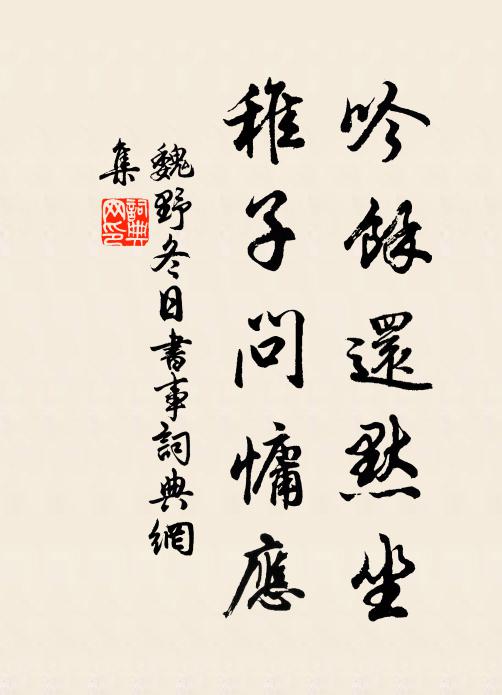 吟餘還默坐
稚子問慵應
魏野冬日書事詞典網
集
詞典
网印